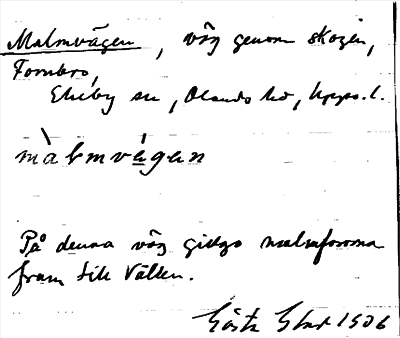 Malmvägen, väg genom skogen,
Fornbro,
Ekeby sn, Olands hd, Upps. l.
màlmvágan
På denna väg gingo malmfororna
fram till Vällen.
Gösta 1906